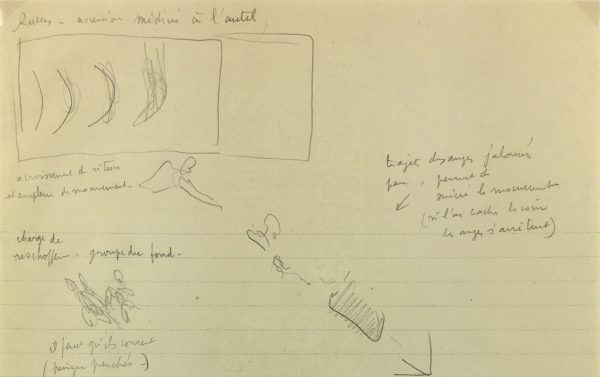 ascension Médicis à l'autel,
accroissement de vitesse
et ampleur du mouvement -
trajet des anges jalonné
par, permet de
suivre le mouvement
(si l'on cache le coin
les anges s'arrêtent)
charge de
groupe du fond -
il faut qu'ils courent
(puisque penchés -)